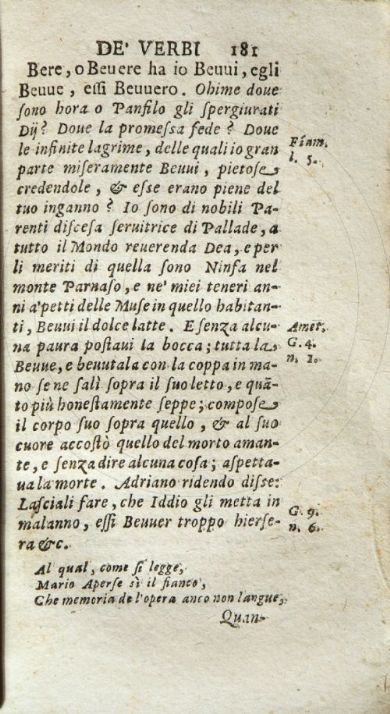 DE' VERBI 181
Bere, o Beuere ha io Beuui, egli
Beuue, eſſi Beuuero. Ohime doue
ſono hora o Panfilo gli ſpergiurati
Dij? Doue la promeſſa fede? Doue
le infinite lagrime, delle quali io gran Fiam.
parte miſeramente Beuui, pietoſe l. 5.
credendole, & eſſe erano piene del
tuo inganno? Io ſono di nobili Pa-
renti diſceſa ſeruitrice di Pallade, a
tutto il Mondo reuerenda Dea, e per
li meriti di quella ſono Ninfa nel
monte Parnaſo, e ne' miei teneri an-
ni a'petti delle Muſe in quello habitan-
ti, Beuui il dolce latte. E ſenza alcu- Amet.
na paura poſtaui la bocca; tutta la G. 4.
Beuue, e beuutala con la coppa in ma- n. 1.
no ſe ne ſalì ſopra il ſuo letto, e quã-
to più honeſtamente ſeppe; compoſe
il corpo ſuo ſopra quello, & al ſuo
cuore accoſtò quello del morto aman-
te, e ſenza dire alcuna coſa; aſpetta-
ua la morte. Adriano ridendo diſſe:
Laſciali fare, che Iddio gli metta in
malanno, eſſi Beuuer troppo hierſe- G. 9.
ra &c. n. 6.
Al qual, come ſi legge,
Mario Aperſe sì il fianco,
Che memoria de l'opera anco non langue,
Quan-